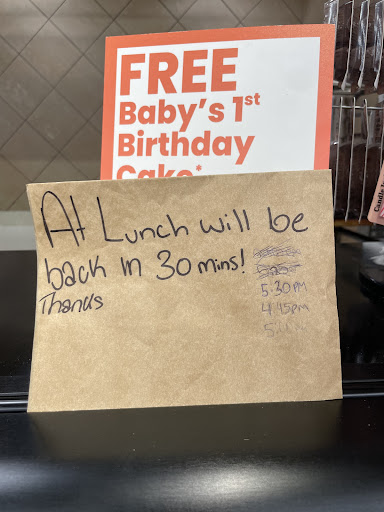 FREE
Baby's 1st
Birthday
Cake*
At Lunch will be
back in 30 mins!
Thanks
5:30 PM
4:45pm
Candle